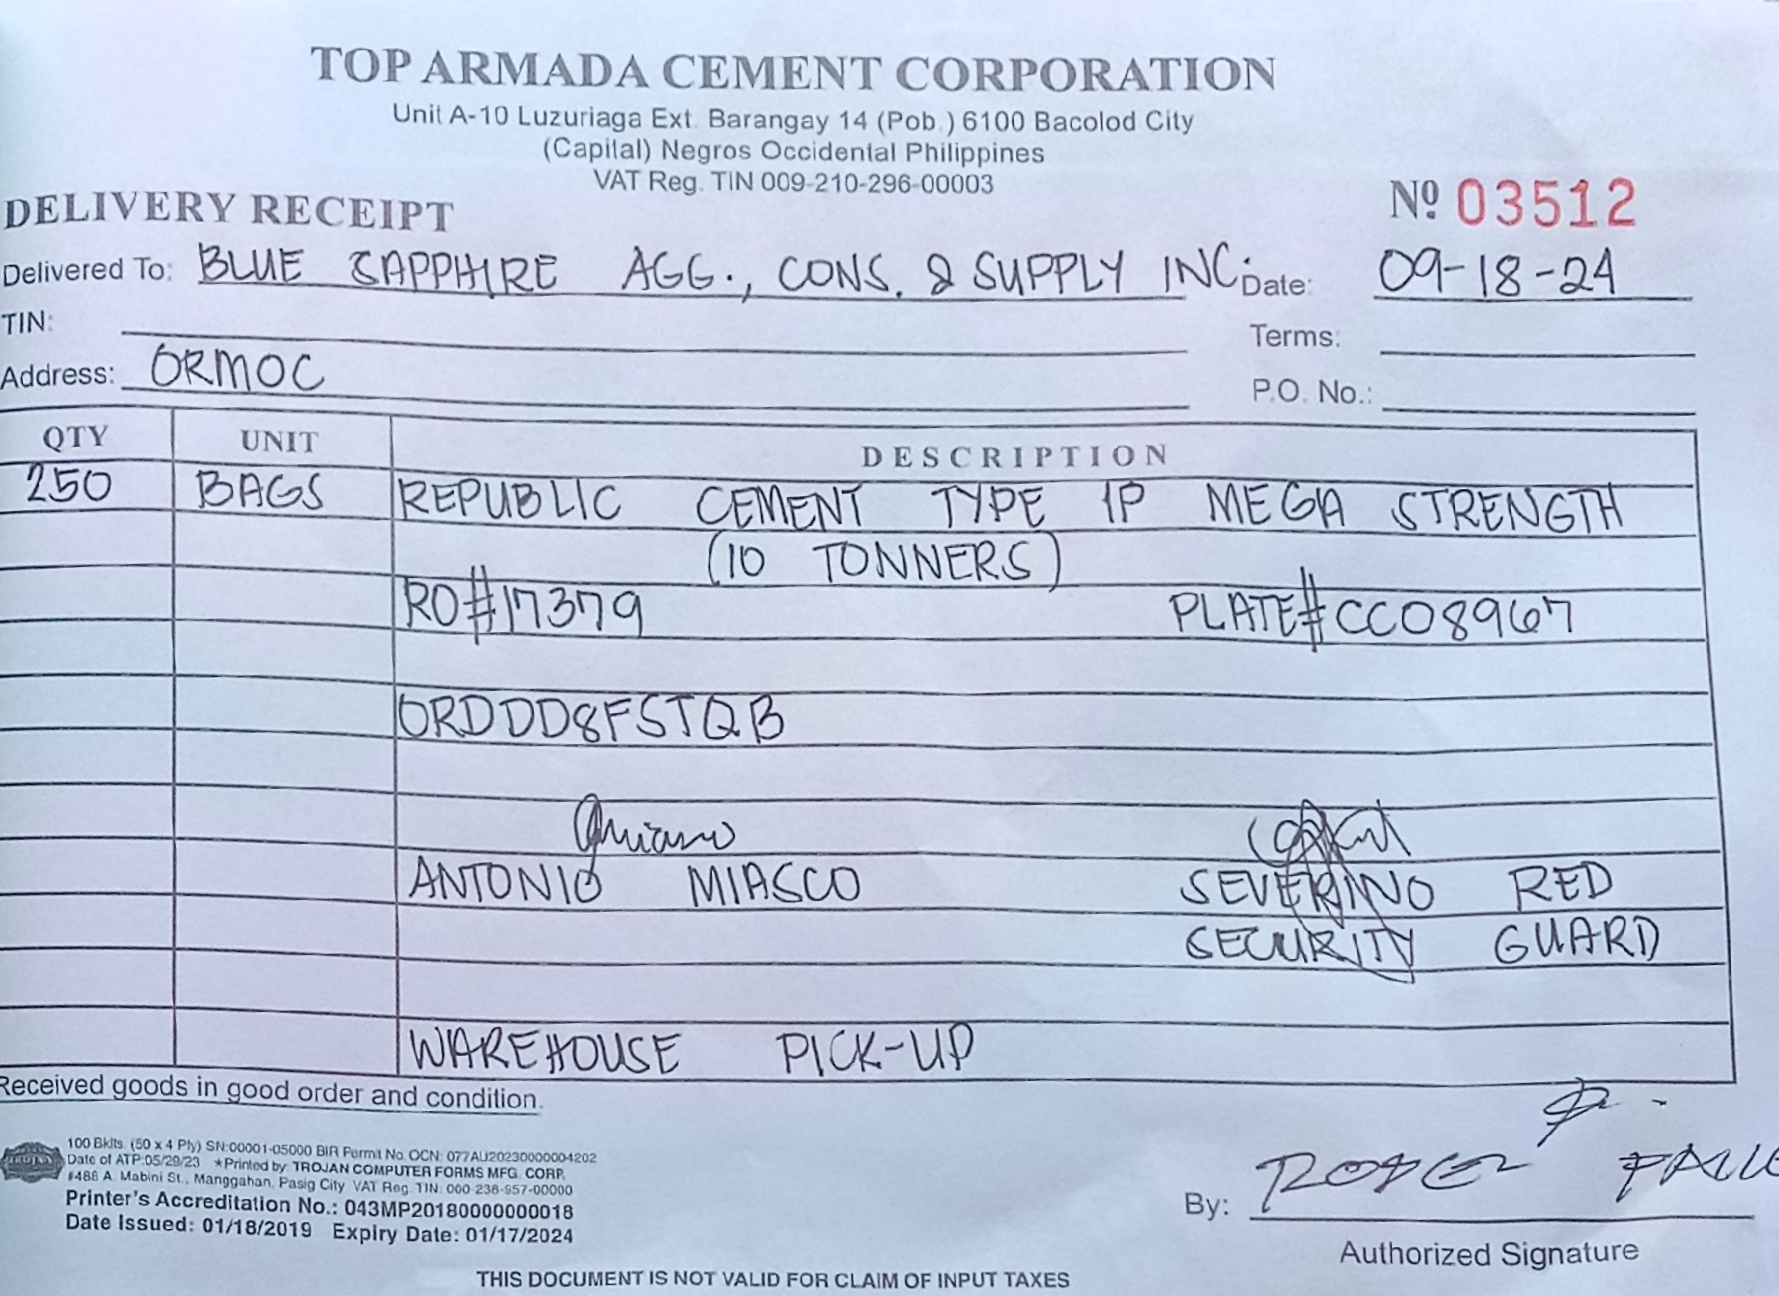 TOP ARMADA CEMENT CORPORATION
Unit A-10 Luzuriaga Ext. Barangay 14 (Pob.) 6100 Bacolod City
(Capital) Negros Occidental Philippines
VAT Reg. TIN 009-210-296-00003
DELIVERY RECEIPT
Nº 03512
Delivered To: BLUE SAPPHIRE AGG., CONS. & SUPPLY INC. Date: 09-18-24
TIN: Terms:
Address: ORMOC P.O. No.:
QTY UNIT DESCRIPTION
250 BAGS REPUBLIC CEMENT TYPE 1P MEGA STRENGTH
(10 TONNERS)
RO#17379 PLATE#CCO8967
ORDDD8FSTQB
ANTONIO MIASCO SEVERINO RED
SECURITY GUARD
WAREHOUSE PICK-UP
Received goods in good order and condition.
100 Bklts. (50 x 4 Ply) SN:00001-05000 BIR Permit No. OCN: 077AU20230000004202
Date of ATP:05/29/23 ★Printed by: TROJAN COMPUTER FORMS MFG. CORP.
#488 A. Mabini St., Manggahan, Pasig City VAT Reg. TIN: 000-238-957-00000
Printer's Accreditation No.: 043MP20180000000018
Date Issued: 01/18/2019 Expiry Date: 01/17/2024
By:
Authorized Signature
THIS DOCUMENT IS NOT VALID FOR CLAIM OF INPUT TAXES